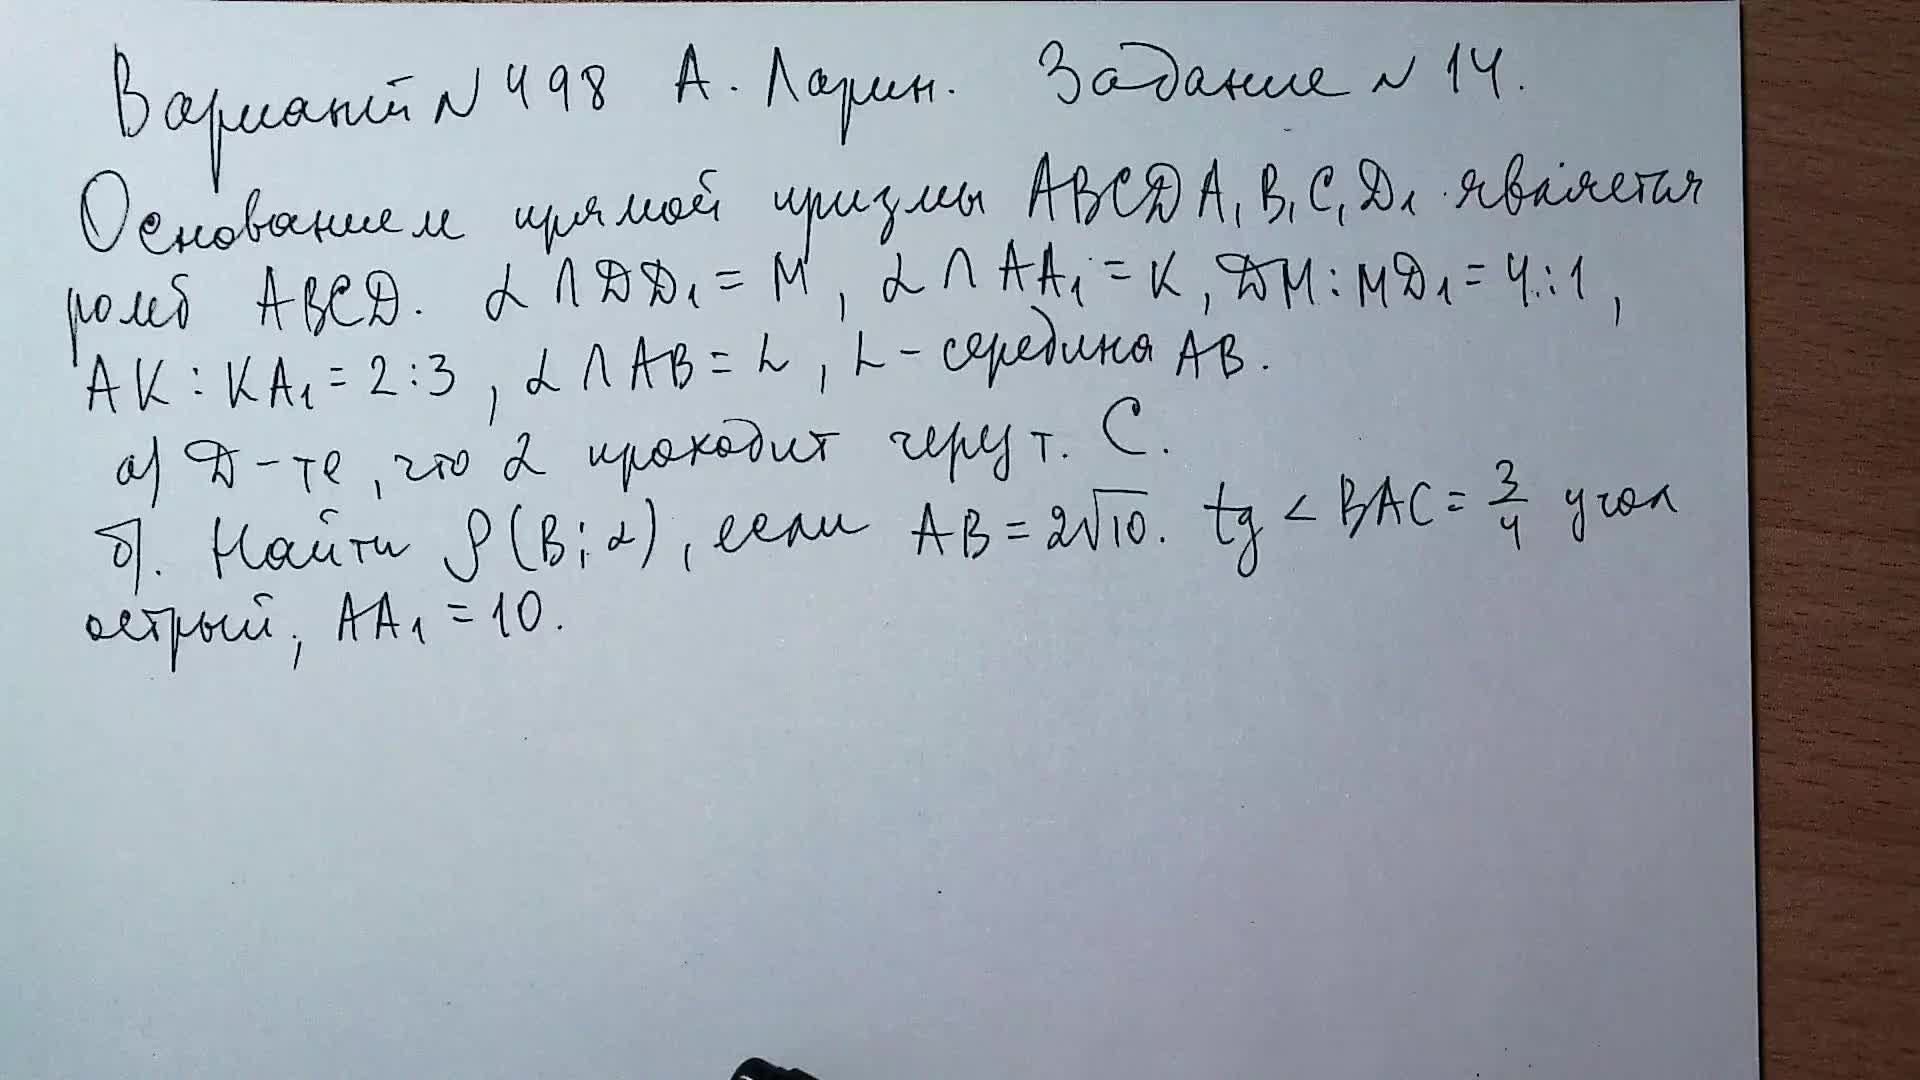 Вариант N 498 А. Ларин. Задание N 14.
Основанием прямой призмы ABCDA₁B₁C₁D₁ является
ромб ABCD. α ∩ DD₁ = M, α ∩ AA₁ = K, DM : MD₁ = 4 : 1,
AK : KA₁ = 2 : 3, α ∩ AB = L, L - середина AB.
а) Д-те, что α проходит через т. C.
б). Найти ρ(B; α), если AB = 2√10. tg < BAC = 3/4 угол
острый, AA₁ = 10.